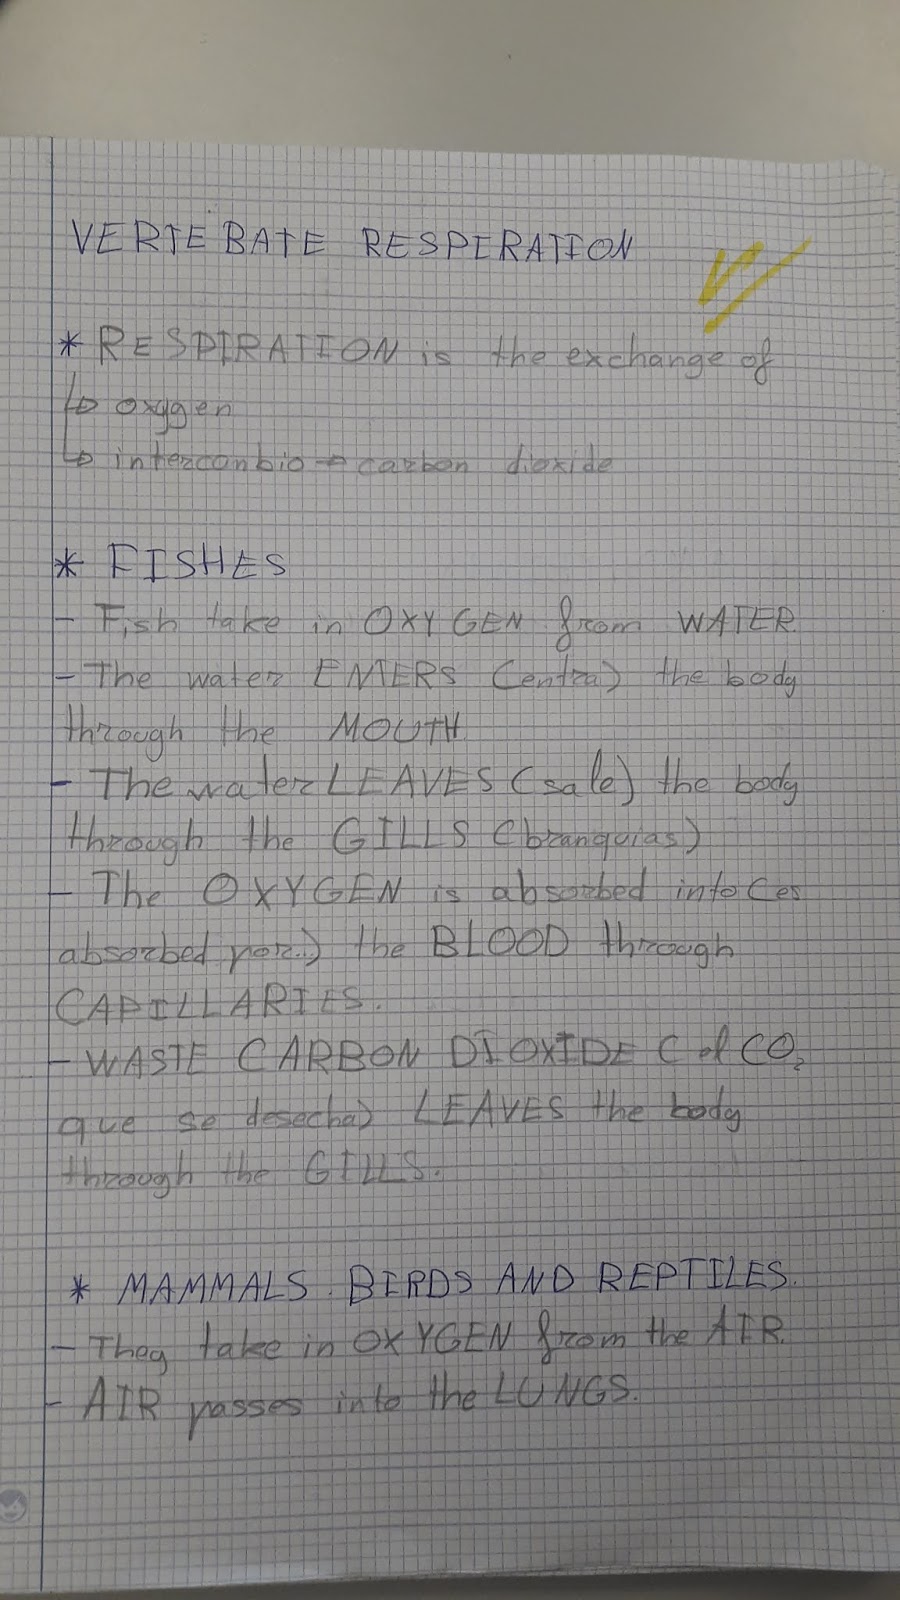 VERTEBATE RESPIRATION
* RESPIRATION is the exchange of
↳ oxygen
↳ interconbio → carbon dioxide
* FISHES
- Fish take in OXYGEN from WATER.
- The water ENTERS (entra) the body
through the MOUTH
- The water LEAVES (sale) the body
through the GILLS (branquias)
- The OXYGEN is absorbed into (es
absorbed por..) the BLOOD through
CAPILLARIES.
- WASTE CARBON DIOXIDE (el CO₂
que se desecha) LEAVES the body
through the GILLS.
* MAMMALS. BIRDS AND REPTILES.
- They take in OXYGEN from the AIR.
- AIR passes into the LUNGS.